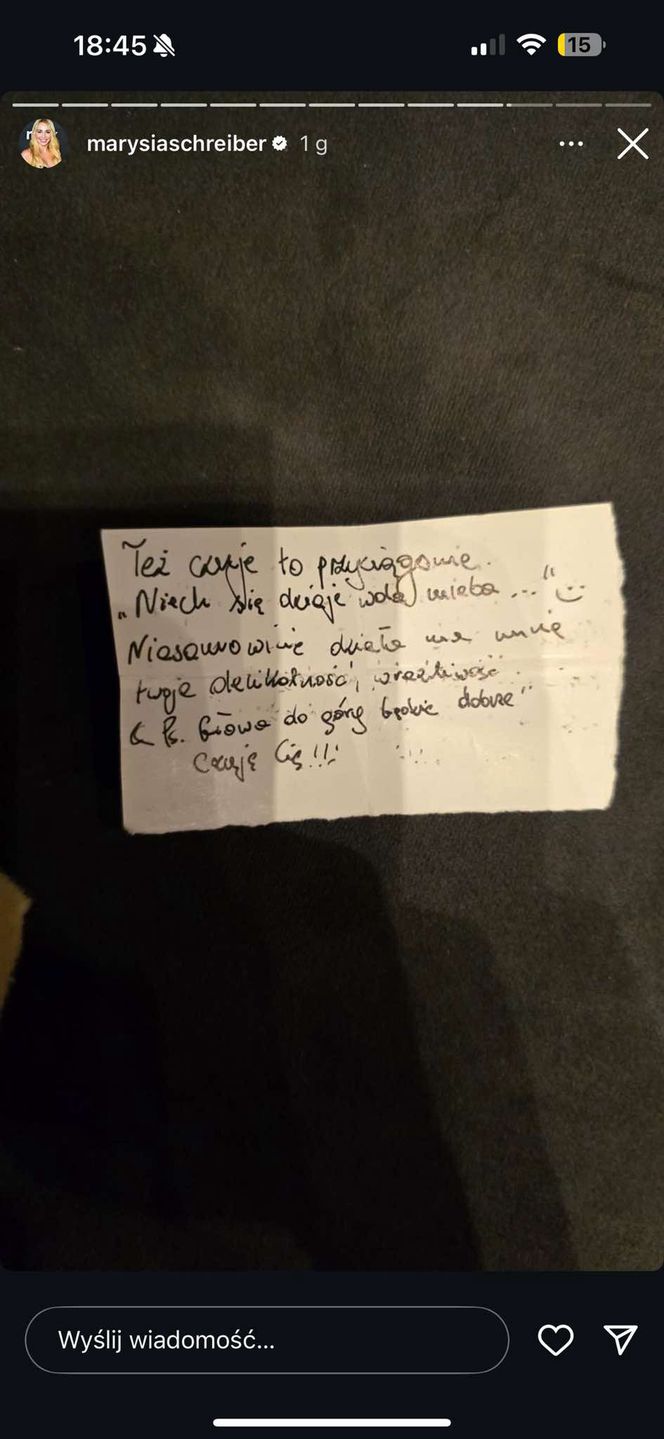 18:45
15
marysiaschreiber 1 g
Też czuje to przyciąganie.
„Niech się dzieje wola nieba..."
Niesamowicie działa na mnie
twoja delikatność, wrażliwość.
Ps. Głowa do góry będzie dobrze"
Czuję Cię!!!
Wyślij wiadomość...